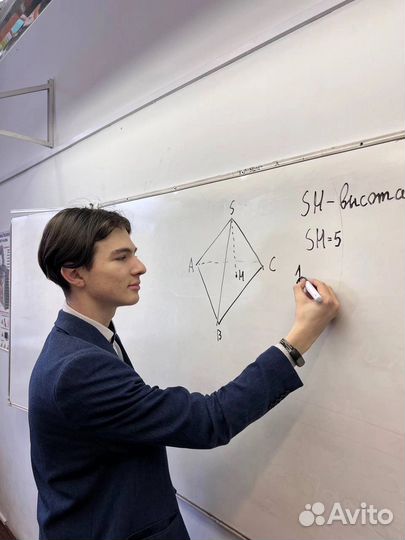 S
SH-высота
SH=5
A
C
H
B
1
Avito